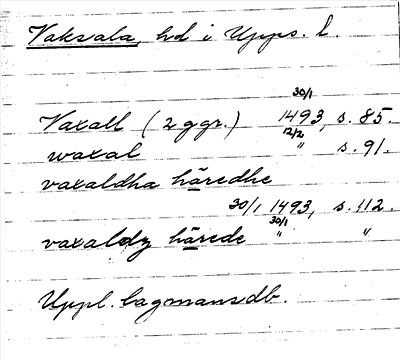 Vaksala, hd i Upps. l.
30/1
Vaxall (2 ggr.) 1493, s. 85.
waxal 12/2 " s. 91.
vaxaldha häredhe
30/1 1493, s. 112.
vaxaldz härede 30/1 " "
Uppl. lagmansdb.